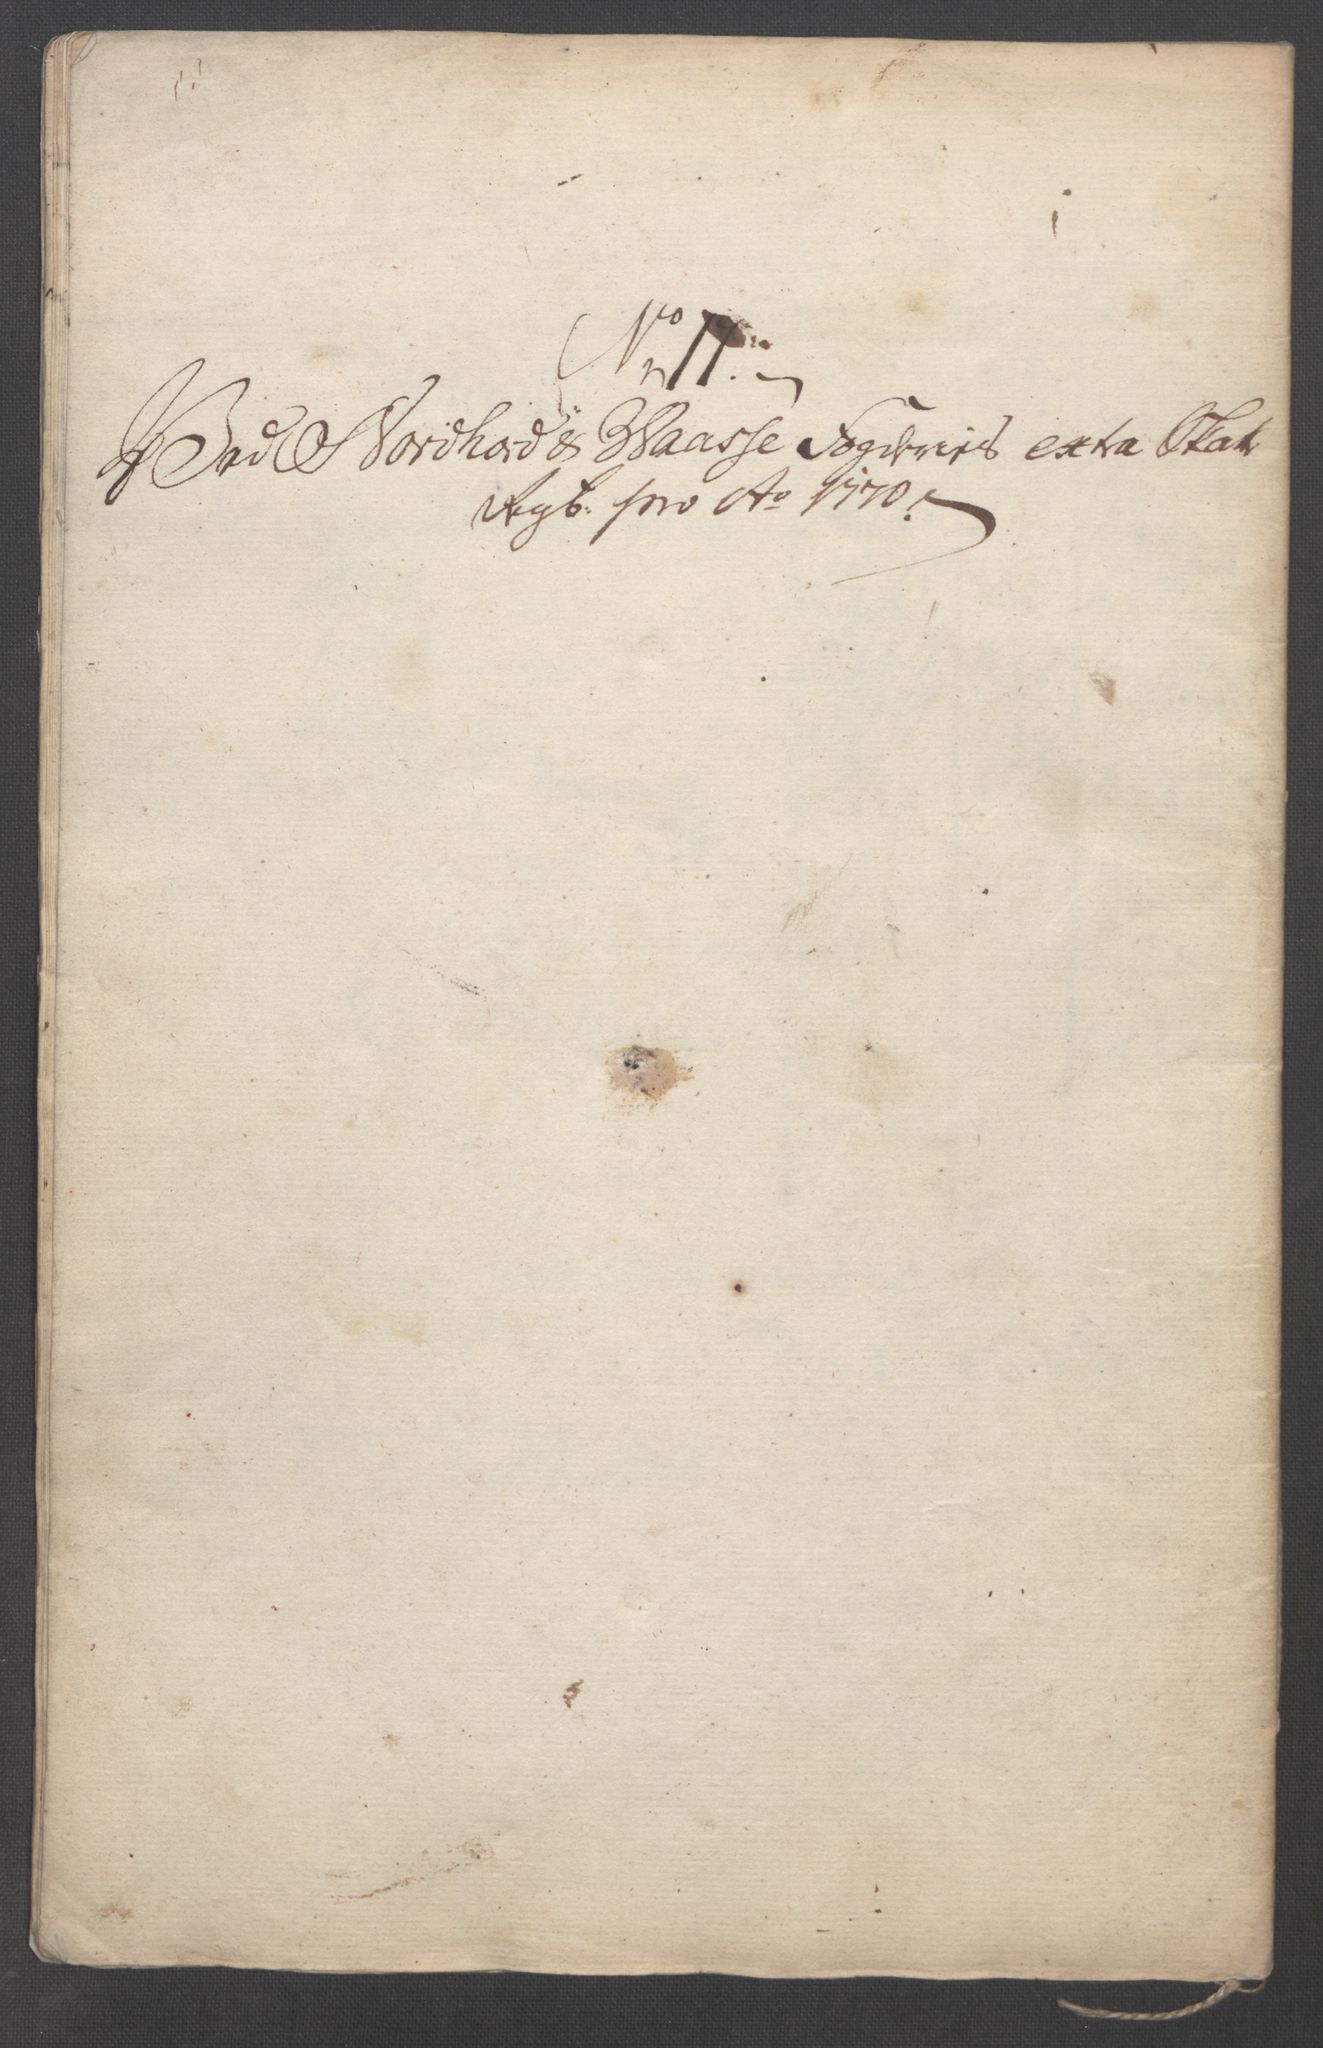 No 11.
Ved Nordhord & Waasse Fogderies extra Skatt
Regb. pro Ao 1770.